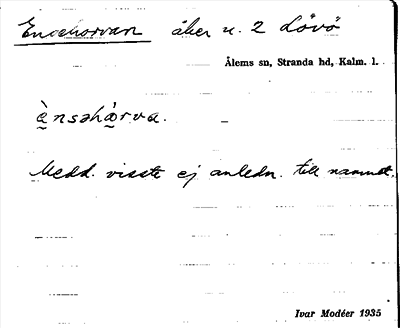 Ensehorvan åker u. 2 Lövö
Ålems sn, Stranda hd, Kalm. l.
ènsəhà̱rva.
Medd. visste ej anledn. till namnet.
Ivar Modéer 1935